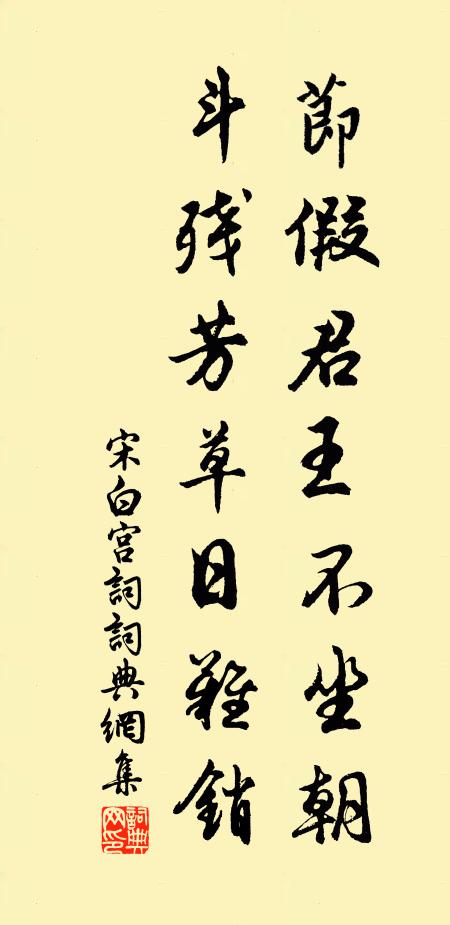 節假君王不坐朝
斗殘芳草日難銷
宋白宮詞詞典網集
詞典網印